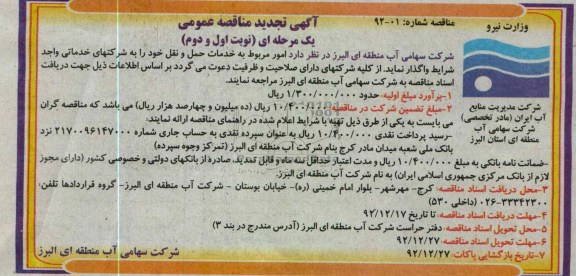 وزارت نیرو
شرکت مدیریت منابع
آب ایران (مادر تخصصی)
شرکت سهامی آب
منطقه ای استان البرز
مناقصه شماره: ۰۱-۹۲
آگهی تجدید مناقصه عمومی
یک مرحله ای (نوبت اول و دوم)
شرکت سهامی آب منطقه ای البرز در نظر دارد امور مربوط به خدمات حمل و نقل خود را به شرکتهای خدماتی واجد
شرایط واگذار نماید. از کلیه شرکتهای دارای صلاحیت و ظرفیت دعوت می گردد بر اساس اطلاعات ذیل جهت دریافت
اسناد مناقصه به شرکت سهامی آب منطقه ای البرز مراجعه نمایند.
۱-برآورد مبلغ اولیه: حدود ۱/۳۰۰/۰۰۰/۰۰۰ ریال
۲-مبلغ تضمین شرکت در مناقصه: ۱۰/۴۰۰/۰۰۰ ریال (ده میلیون و چهارصد هزار ریال) می باشد که مناقصه گران
می بایست به یکی از طرق ذیل تهیه با شرایط اعلام شده در راهنمای مناقصه ارائه نمایند:
-رسید پرداخت نقدی ۱۰/۴۰۰/۰۰۰ ریال به عنوان سپرده نقدی به حساب جاری شماره ۲۱۷۰۰۹۶۱۴۷۰۰۰ نزد
بانک ملی شعبه میدان مادر کرج بنام شرکت آب منطقه ای البرز (تمرکز وجوه سپرده)
-ضمانت نامه بانکی به مبلغ ۱۰/۴۰۰/۰۰۰ ریال و مدت اعتبار حداقل سه ماه و قابل تمدید، صادره از بانکهای دولتی و خصوصی کشور (دارای مجوز
لازم از بانک مرکزی جمهوری اسلامی ایران) به نام شرکت آب منطقه ای البرز.
۳-محل دریافت اسناد مناقصه: کرج- مهرشهر- بلوار امام خمینی (ره)- خیابان بوستان - شرکت آب منطقه ای البرز- گروه قراردادها تلفن:
۰۲۶-۳۳۳۴۲۳۰۰ (داخلی ۵۳۰)
۴-مهلت دریافت اسناد مناقصه: تا تاریخ ۹۲/۱۲/۱۷
۵-محل تحویل اسناد مناقصه: دفتر حراست شرکت آب منطقه ای البرز (آدرس مندرج در بند ۳)
۶-مهلت تحویل اسناد مناقصه: ۹۲/۱۲/۲۷
۷-تاریخ بازگشایی پاکات: ۹۲/۱۲/۲۷
شرکت سهامی آب منطقه ای البرز